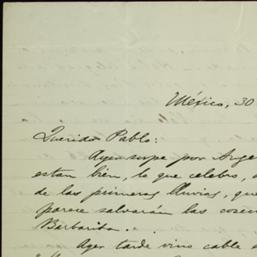 México, 30
Querido Pablo:
Ayer supe por Ange
estan bien, lo que celebro,
de las primeras lluvias, que
parece salvarán las cosec
Barbarita.
Ayer tarde vino cable